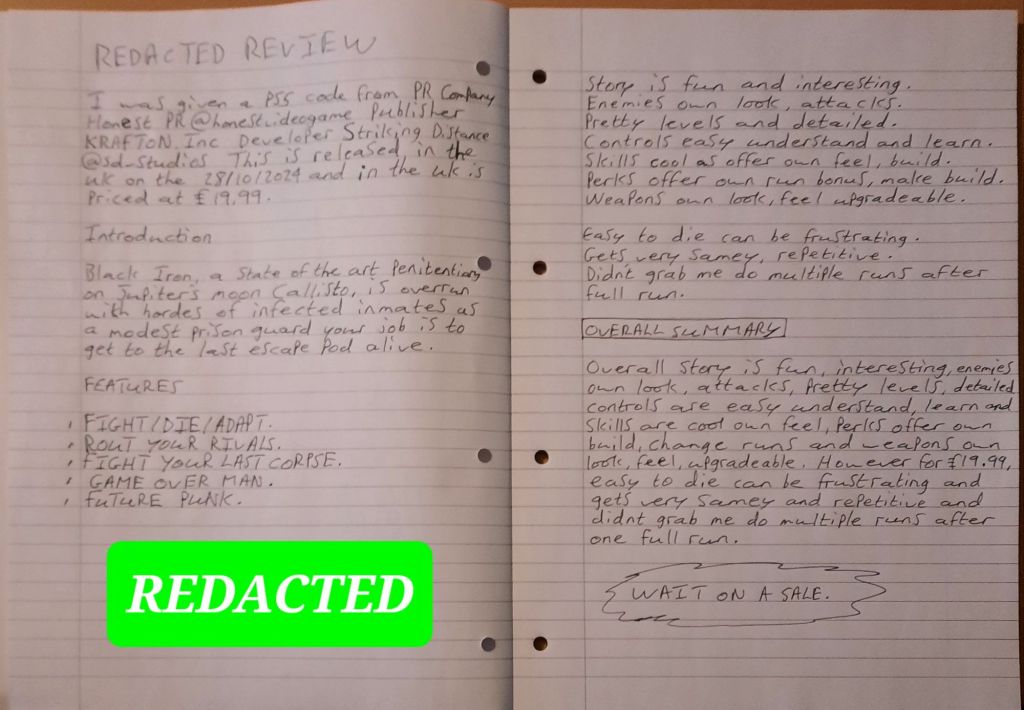 REDACTED REVIEW
I was given a PS5 code from PR Company
Honest PR @honestvideogame Publisher
KRAFTON Inc Developer Striking Distance
@sd_studios This is released in the
uk on the 28/10/2024 and in the uk is
Priced at £19.99.
Introduction
Black Iron, a state of the art Penitentiary
on Jupiter's moon Callisto, is overrun
with hordes of infected inmates as
a modest prison guard your job is to
get to the last escape Pod alive.
FEATURES
• FIGHT/DIE/ADAPT.
• ROUT YOUR RIVALS.
• FIGHT YOUR LAST CORPSE.
• GAME OVER MAN.
• FUTURE PUNK.
REDACTED
Story is fun and interesting.
Enemies own look, attacks.
Pretty levels and detailed.
Controls easy understand and learn.
Skills cool as offer own feel, build.
Perks offer own run bonus, make build.
Weapons own look, feel upgradeable.
Easy to die can be frustrating.
Gets very samey, repetitive.
Didnt grab me do multiple runs after
full run.
OVERALL SUMMARY
Overall story is fun, interesting, enemies
own look, attacks, Pretty levels, detailed
controls are easy understand, learn and
skills are cool own feel, Perks offer own
build, change runs and weapons own
look, feel, upgradeable. However for £19.99,
easy to die can be frustrating and
gets very samey and repetitive and
didnt grab me do multiple runs after
one full run.
WAIT ON A SALE.